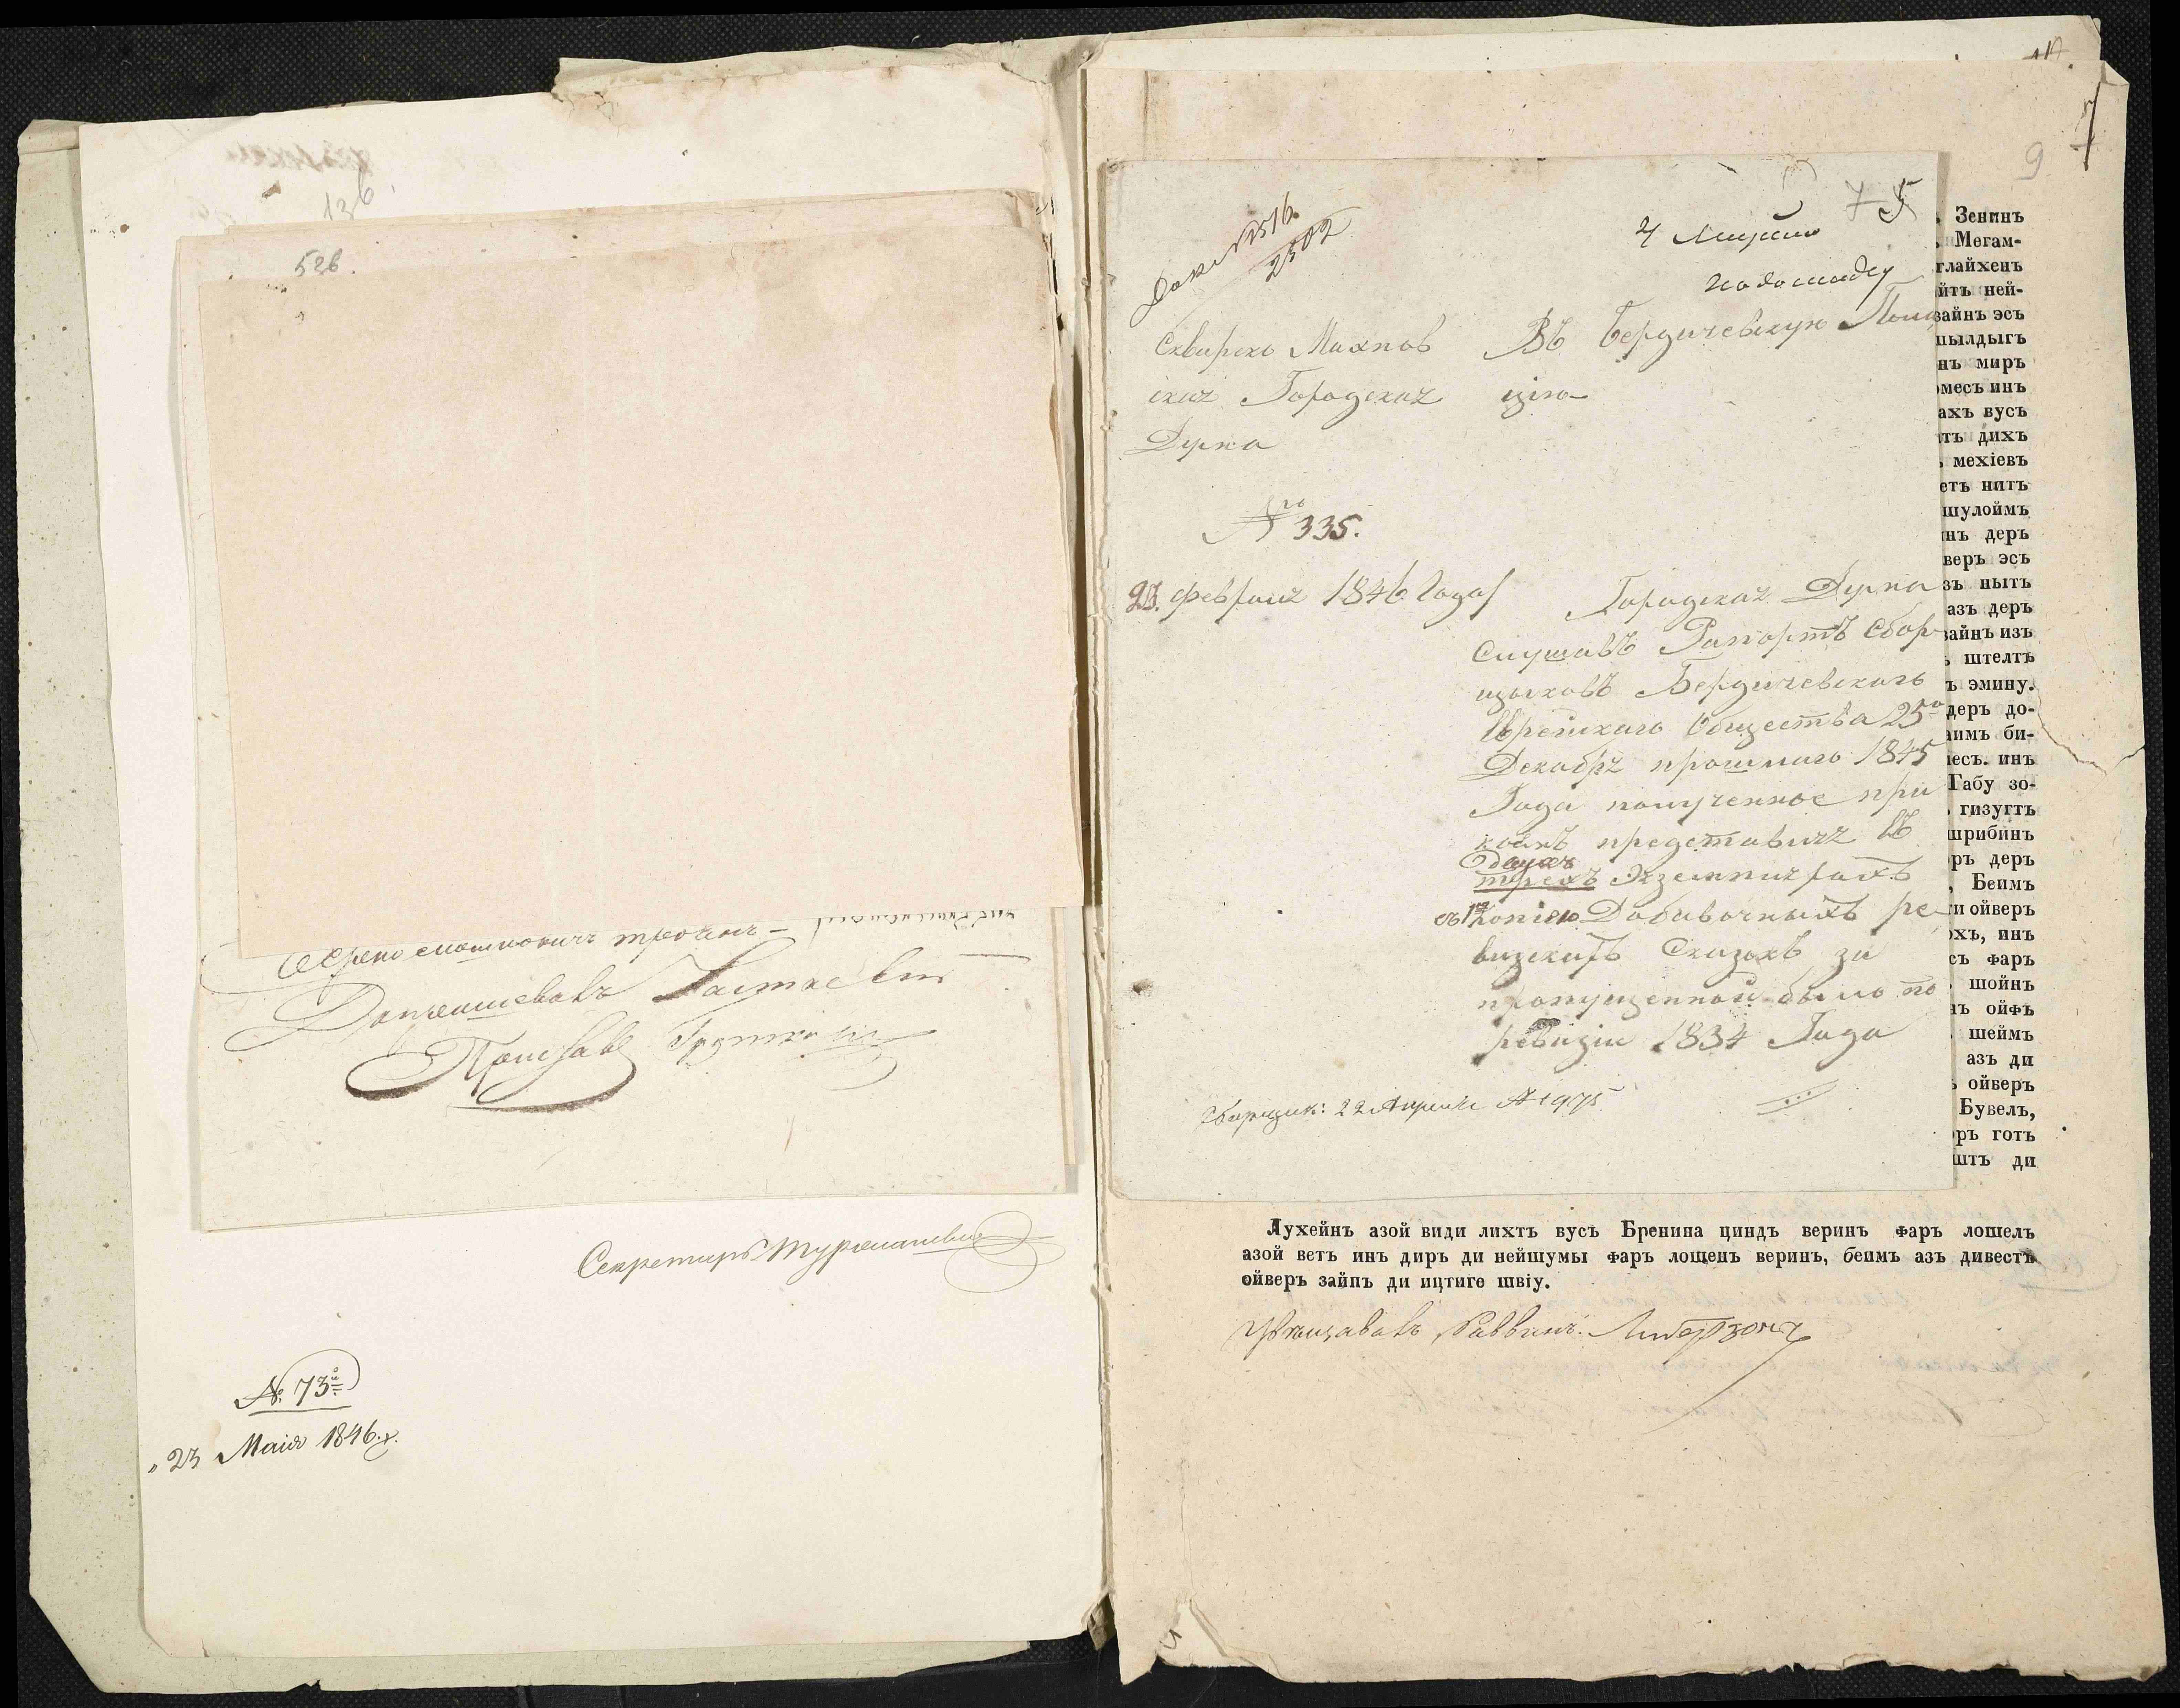 136
526.
Секретарь Туркашевич
№ 73й
„23 Маія 1846.г.
9
7 5
№ 2516.
2502
Въ Бердичевскую Поли
цію
Сквирско Махнов
ская Городская
Дума
№ 335.
23. февраля 1846 Года
Городская Дума
Слушавъ Рапортъ Сбор-
щиковъ Бердичевскаго
Еврейскаго Общества 25го
Декабря прошлаго 1845
Года полученное при
коемъ представили въ
двухъ
трехъ Экземплярахъ
съ копіею Добавочныхъ ре-
визскихъ Сказокъ за
пропущенной было по
ревизіи 1834 Года
Сборщик: 22 Апреля № 1975
Зенинъ
Мегам-
глайхенъ
йтъ ней-
зайнъ эсъ
пылдыгъ
нъ миръ
омесъ инъ
ахъ вусъ
тъ дихъ
мехіевъ
етъ нитъ
шулоймъ
инъ деръ
веръ эсъ
зъ нытъ
азъ деръ
зайнъ изъ
штелтъ
ъ эмину.
деръ до-
аимъ би-
месъ. инъ
Габу зо-
гизугтъ
шрибинъ
ръ деръ
, Беимъ
и ойверъ
охъ, инъ
съ фаръ
шойнъ
нъ ойфъ
шеймъ
азъ ди
ойверъ
Бувелъ,
ръ готъ
штъ ди
Лухейнъ азой види лихтъ вусъ Бренина циндъ веринъ фаръ лошелъ
азой ветъ инъ диръ ди нейшумы фаръ лошенъ веринъ, беимъ азъ дивестъ
ойверъ зайнъ ди ицтиге швіу.
Раввинъ